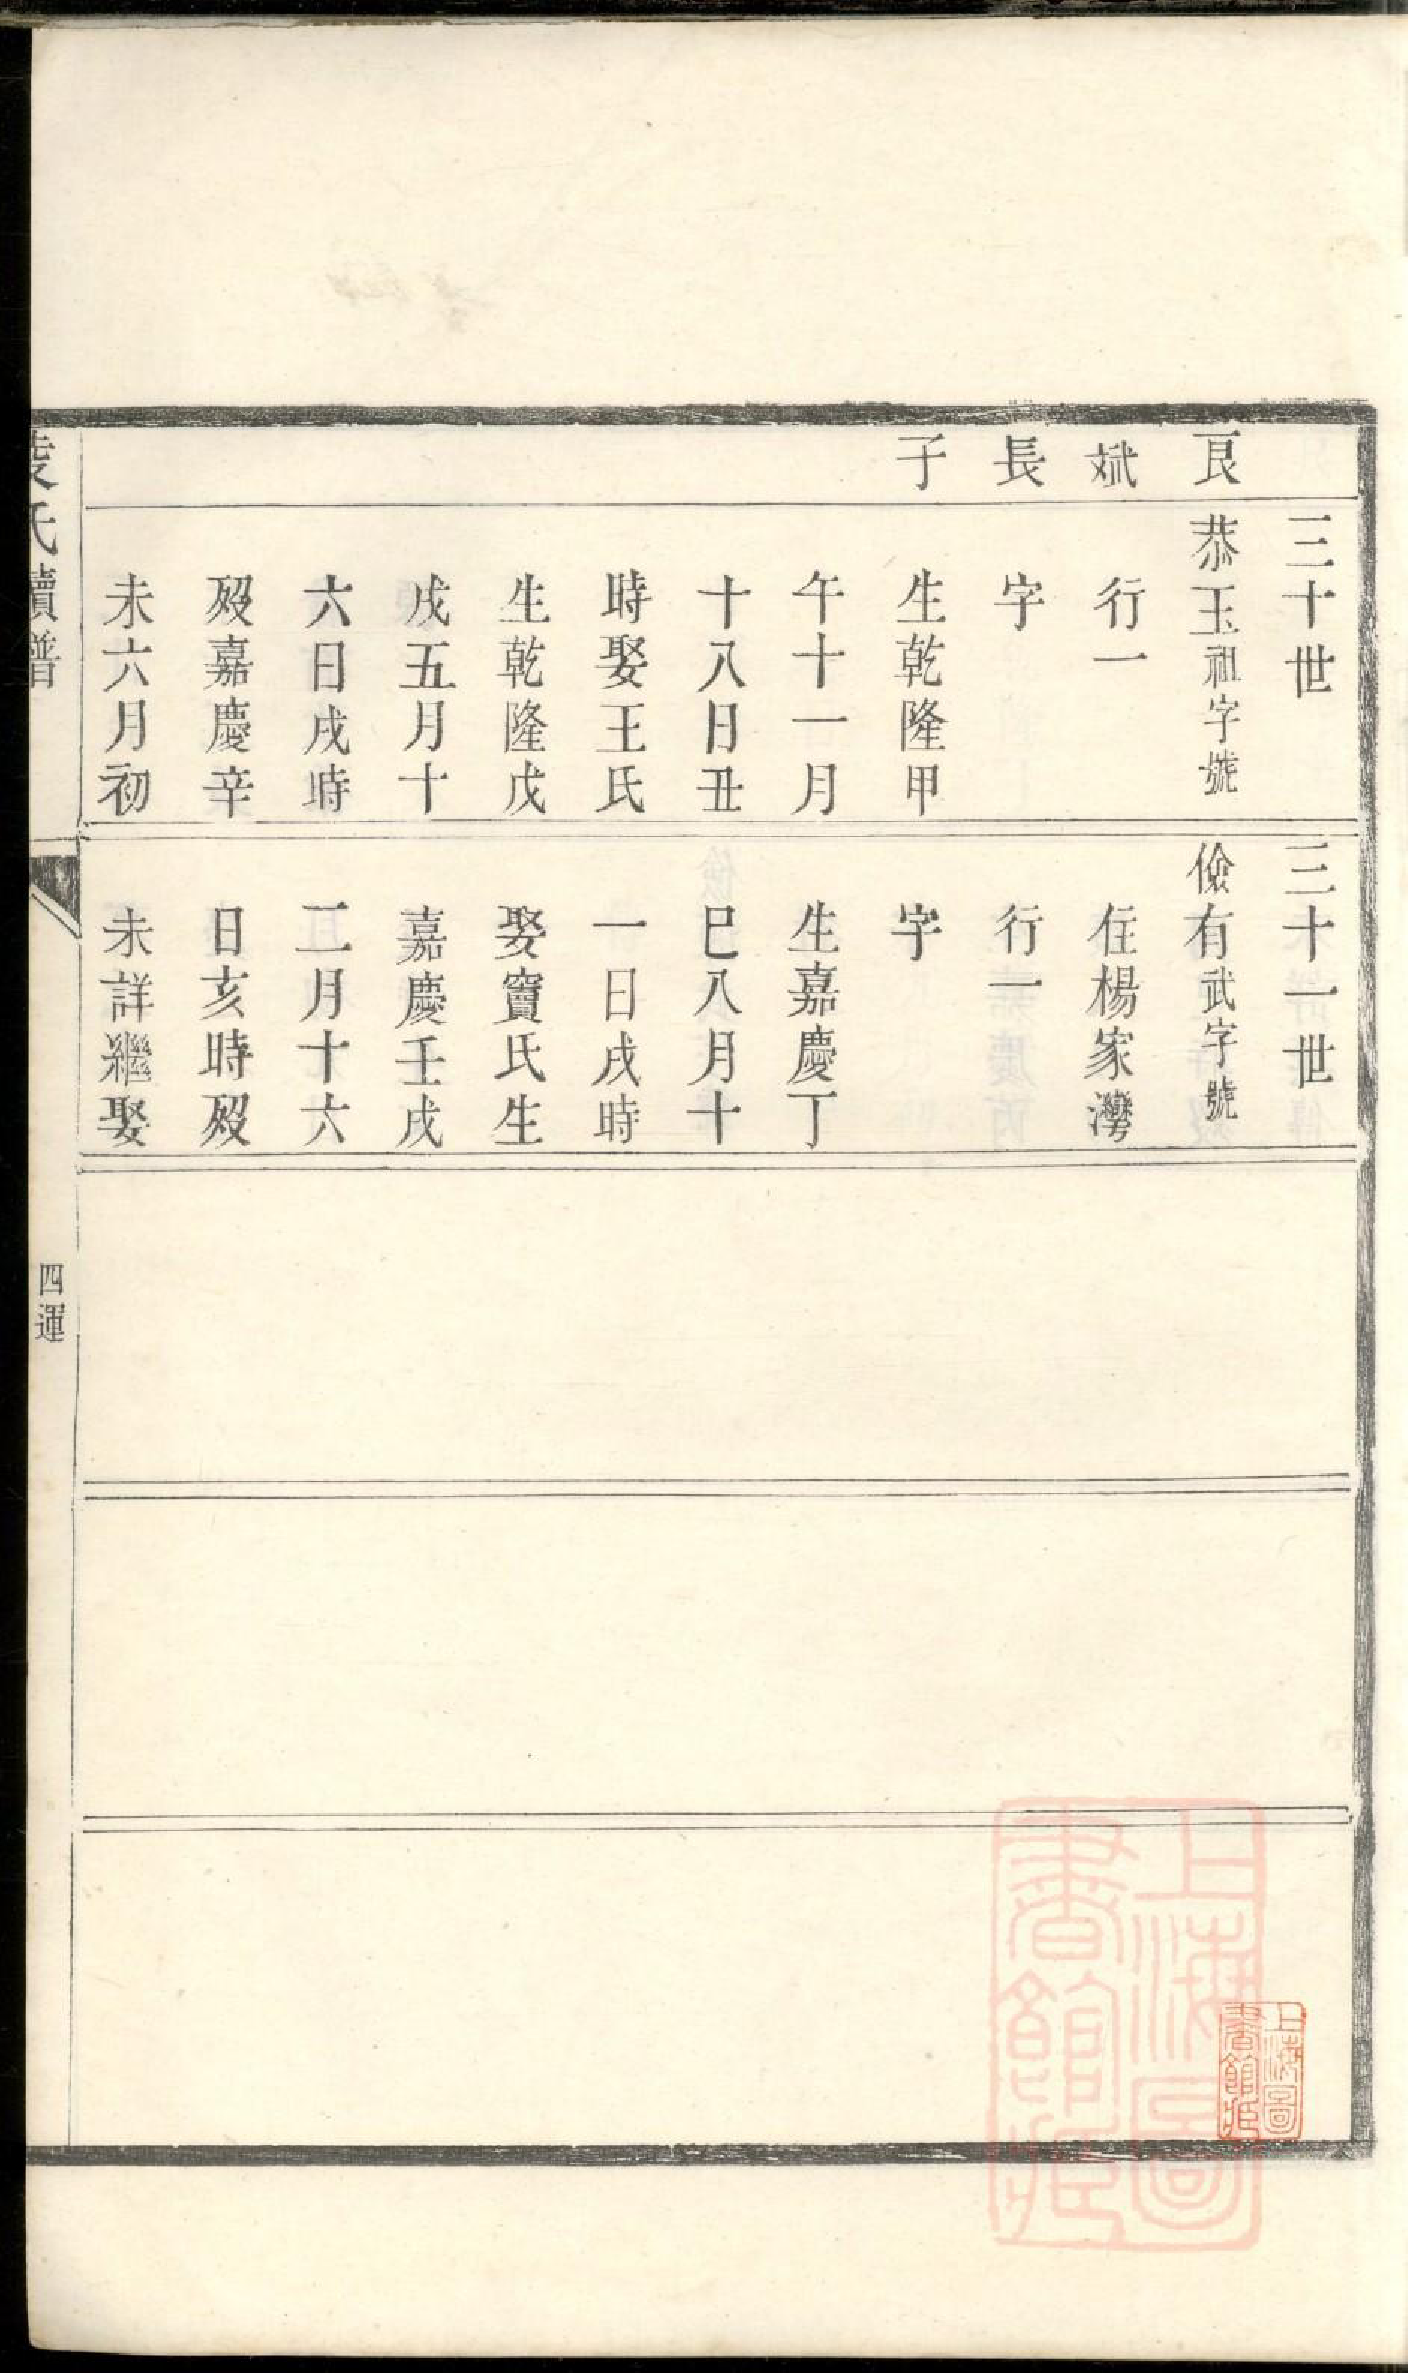 良
斌
長
子
三十世
恭玉祖字號
行一
字
生乾隆甲
午十一月
十八日丑
時娶王氏
生乾隆戊
戌五月十
六日戌時
殁嘉慶辛
未六月初
三十一世
儉有武字號
住楊家灣
行一
字
生嘉慶丁
巳八月十
一日戌時
娶竇氏生
嘉慶壬戌
二月十六
日亥時殁
未詳繼娶
氏續譜
四運
上海圖
書館藏
上海圖
書館藏